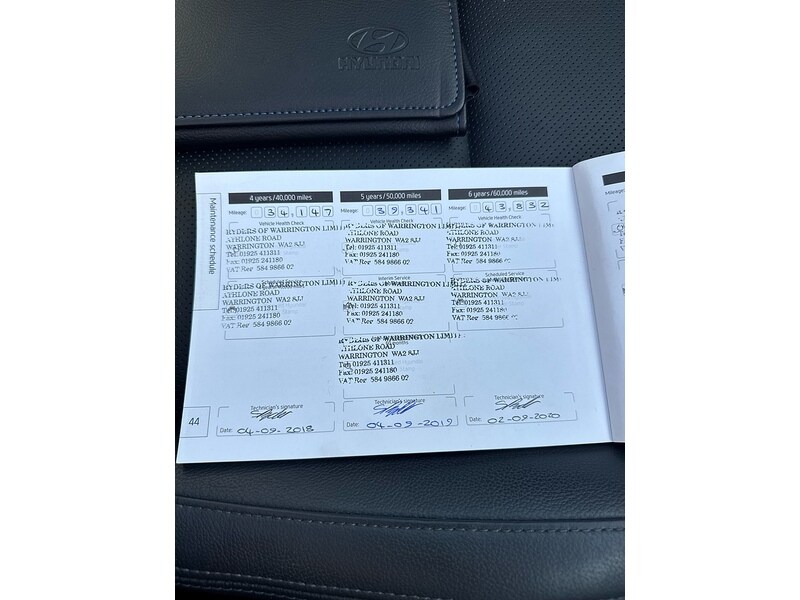 HYUNDAI
Maintenance schedule
4 years/40,000 miles
Mileage: 34,147
Vehicle Health Check
RYDERS OF WARRINGTON LIMIT
ATHLONE ROAD
WARRINGTON WA2 8JJ
Tel: 01925 411311
Fax: 01925 241180
VAT Reg 584 9866 02
RYDERS OF WARRINGTON LIMIT
ATHLONE ROAD
WARRINGTON WA2 8JJ
Tel: 01925 411311
Fax: 01925 241180
VAT Reg 584 9866 02
Technician's signature
Date: 04-09-2018
5 years/50,000 miles
Mileage: 39,341
Vehicle Health Check
RYDERS OF WARRINGTON LIMIT
ATHLONE ROAD
WARRINGTON WA2 8JJ
Tel: 01925 411311
Fax: 01925 241180
VAT Reg 584 9866 02
Interim Service
RYDERS OF WARRINGTON LIMITE
ATHLONE ROAD
WARRINGTON WA2 8JJ
Tel: 01925 411311
Fax: 01925 241180
VAT Reg 584 9866 02
RYDERS OF WARRINGTON LIMITE
ATHLONE ROAD
WARRINGTON WA2 8JJ
Tel: 01925 411311
Fax: 01925 241180
VAT Reg 584 9866 02
Technician's signature
Date: 04-09-2019
6 years/60,000 miles
Mileage: 43,832
Vehicle Health Check
RYDERS OF WARRINGTON LIMI
ATHLONE ROAD
WARRINGTON WA2 8JJ
Tel: 01925 411311
Fax: 01925 241180
VAT Reg 584 9866 02
Scheduled Service
RYDERS OF WARRINGTON LIMIT
ATHLONE ROAD
WARRINGTON WA2 8JJ
Tel: 01925 411311
Fax: 01925 241180
VAT Reg 584 9866
Technician's signature
Date: 02-09-2020
44